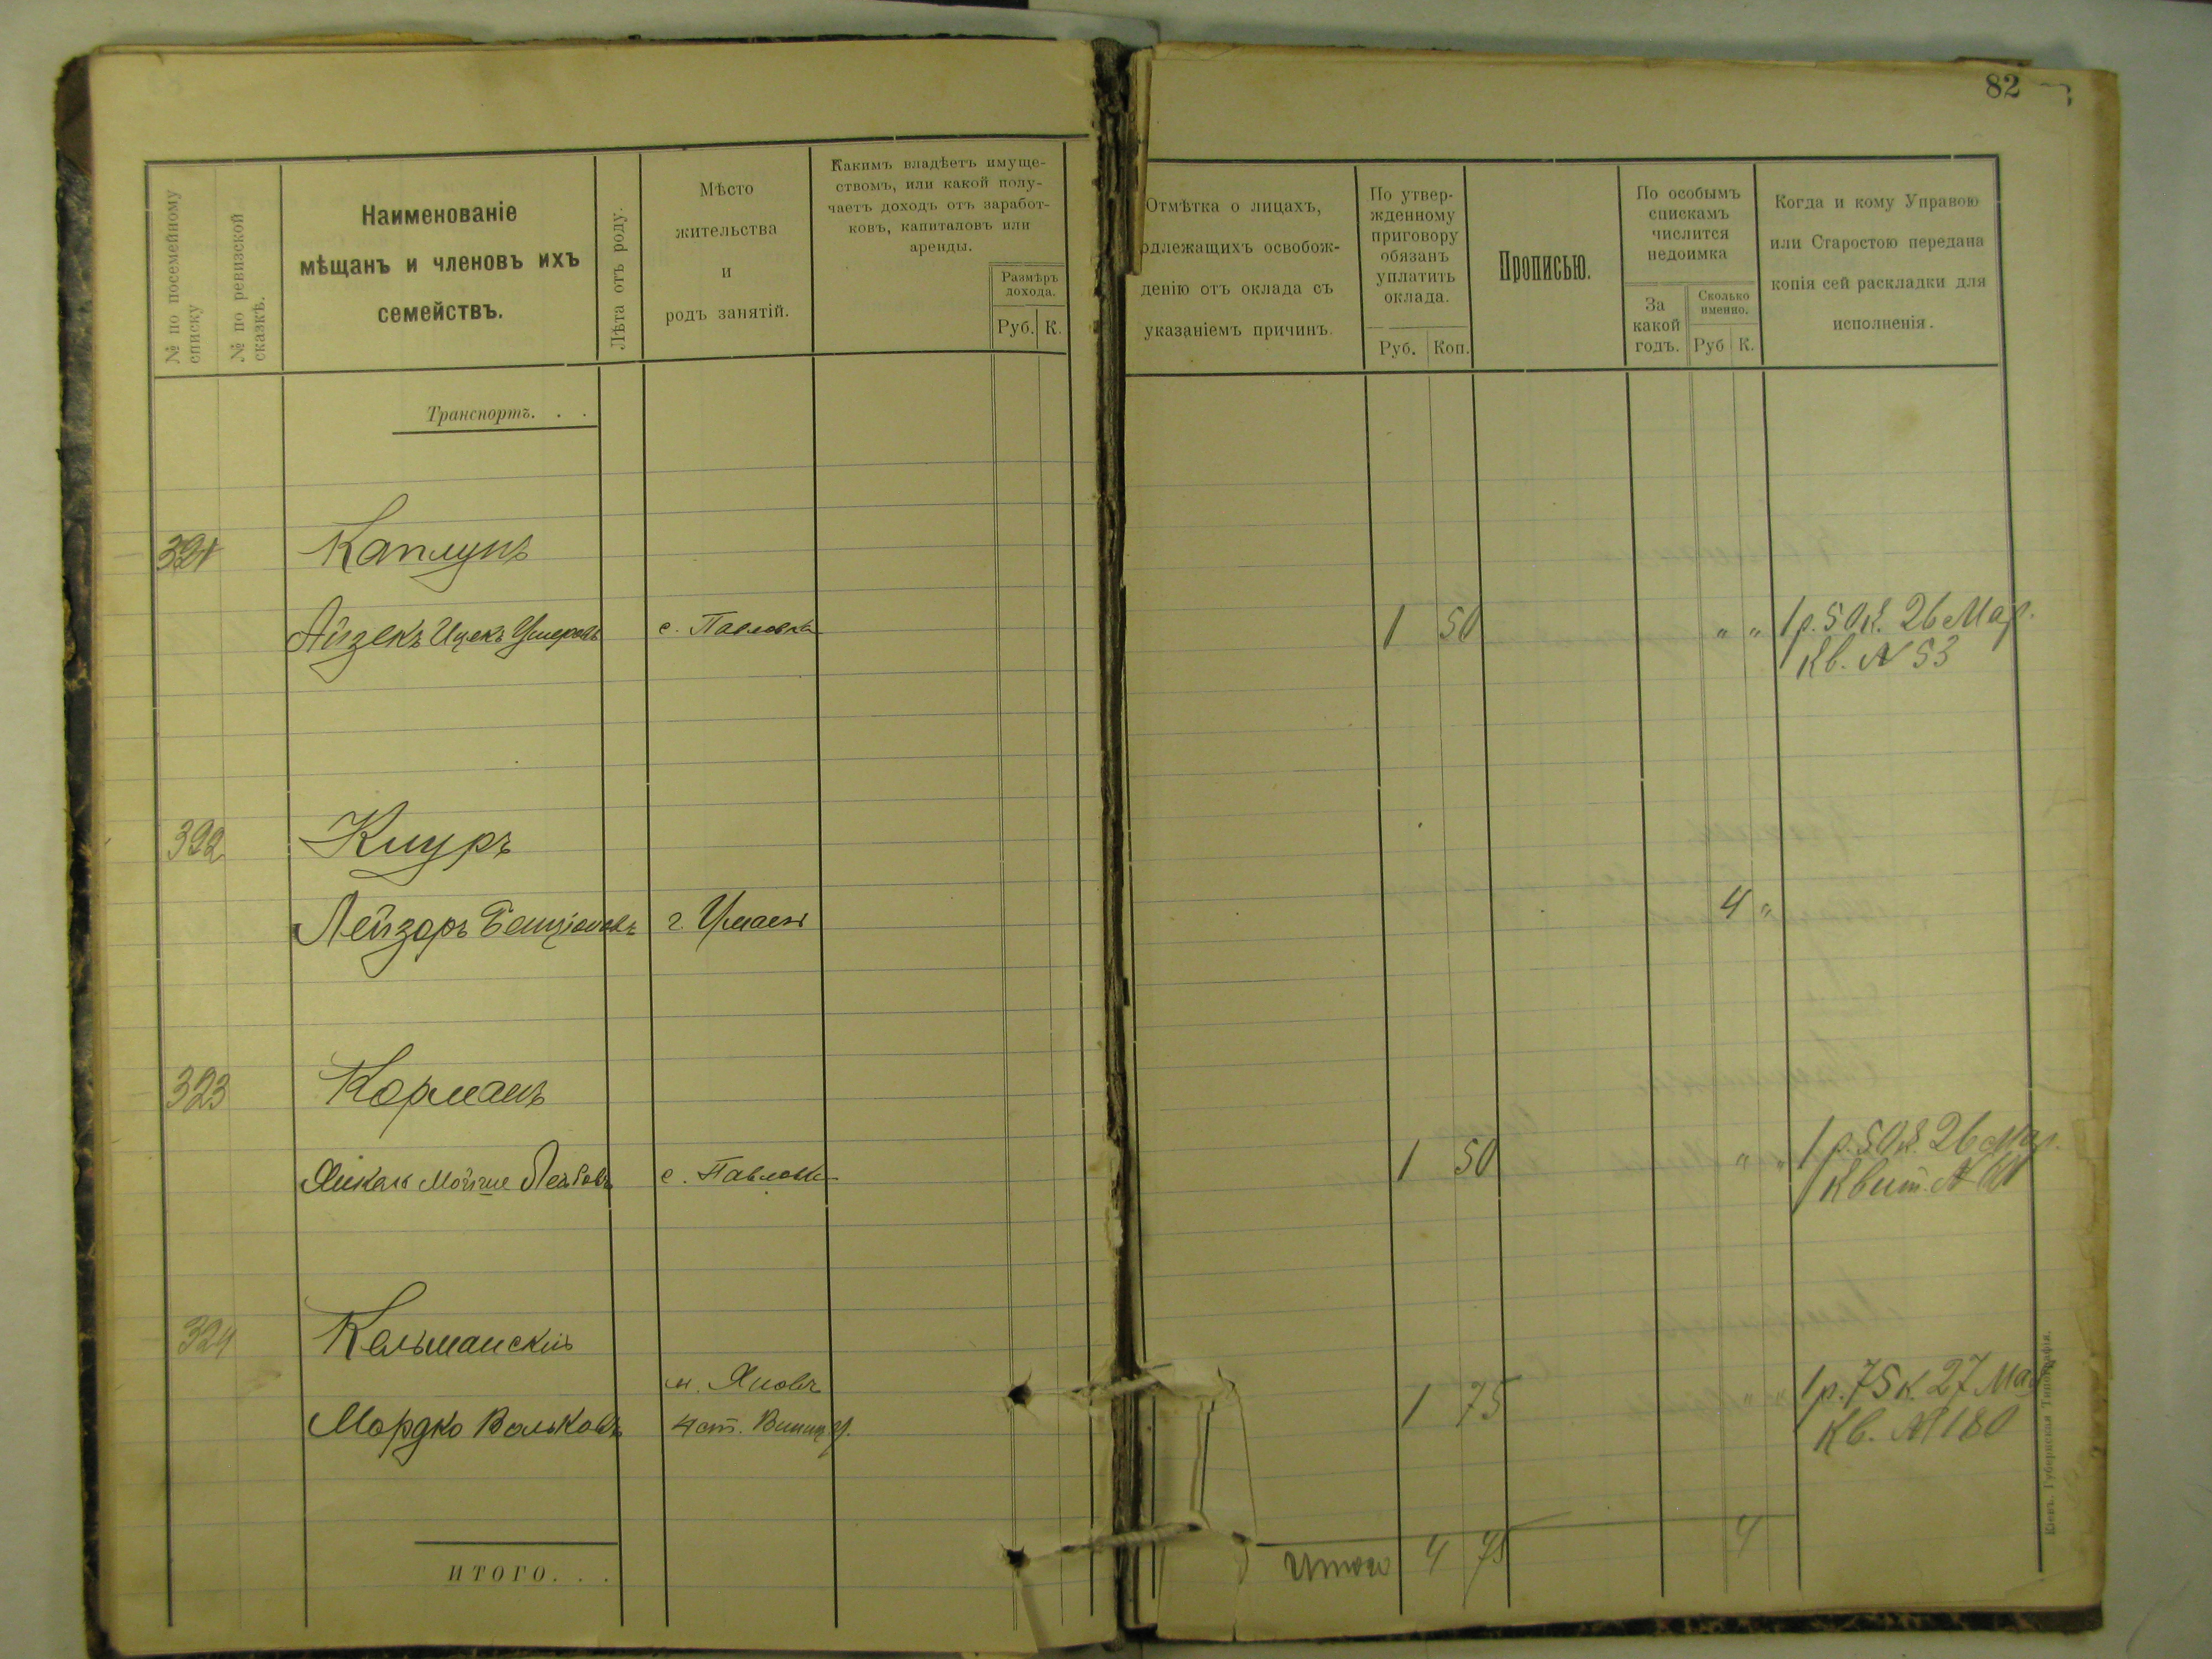 82
№ по посемейному списку
№ по ревизской сказкѣ.
Наименованіе
мѣщанъ и членовъ ихъ
семействъ.
Лѣта отъ роду.
Мѣсто
жительства
и
родъ занятій.
Какимъ владѣетъ имуще-
ствомъ, или какой полу-
чаетъ доходъ отъ заработ-
ковъ, капиталовъ или
аренды.
Размѣръ
дохода.
Руб. К.
Отмѣтка о лицахъ,
одлежащихъ освобож-
денію отъ оклада съ
указаніемъ причинъ.
По утвер-
жденному
приговору
обязанъ
уплатить
оклада.
Руб. Коп.
Прописью.
По особымъ
спискамъ
числится
недоимка
За
какой
годъ.
Сколько
именно.
Руб К.
Когда и кому Управою
или Старостою передана
копія сей раскладки для
исполненія.
Транспортъ. . .
321 Каплунъ
Айзекъ Ицекъ Ушеровъ с. Павловка 1 50 " " 1 р. 50 к. 26 Мар.
Кв. № 53
322 Кнуръ
Лейзоръ Бенціоновъ г. Умань 4 "
323 Корманъ
Янкель Мойше Лейбовъ с. Павловка 1 50 " " 1 р. 50 к. 26 Мар.
Квит. № 61
324 Кельманскій
м. Яновъ
Мордко Вольковъ 4 ст. Винниц. у. 1 75 " " 1 р. 75 к. 27 Мар
Кв. № 180
ИТОГО. . .
Итого 4 75 4
Кіевъ. Губернская Типографія.